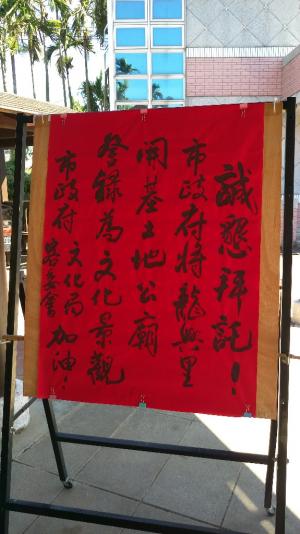 誠懇拜託！
市政府將龍興里
開基土地公廟
登錄為文化景觀
市政府 文化局 客委會 加油！